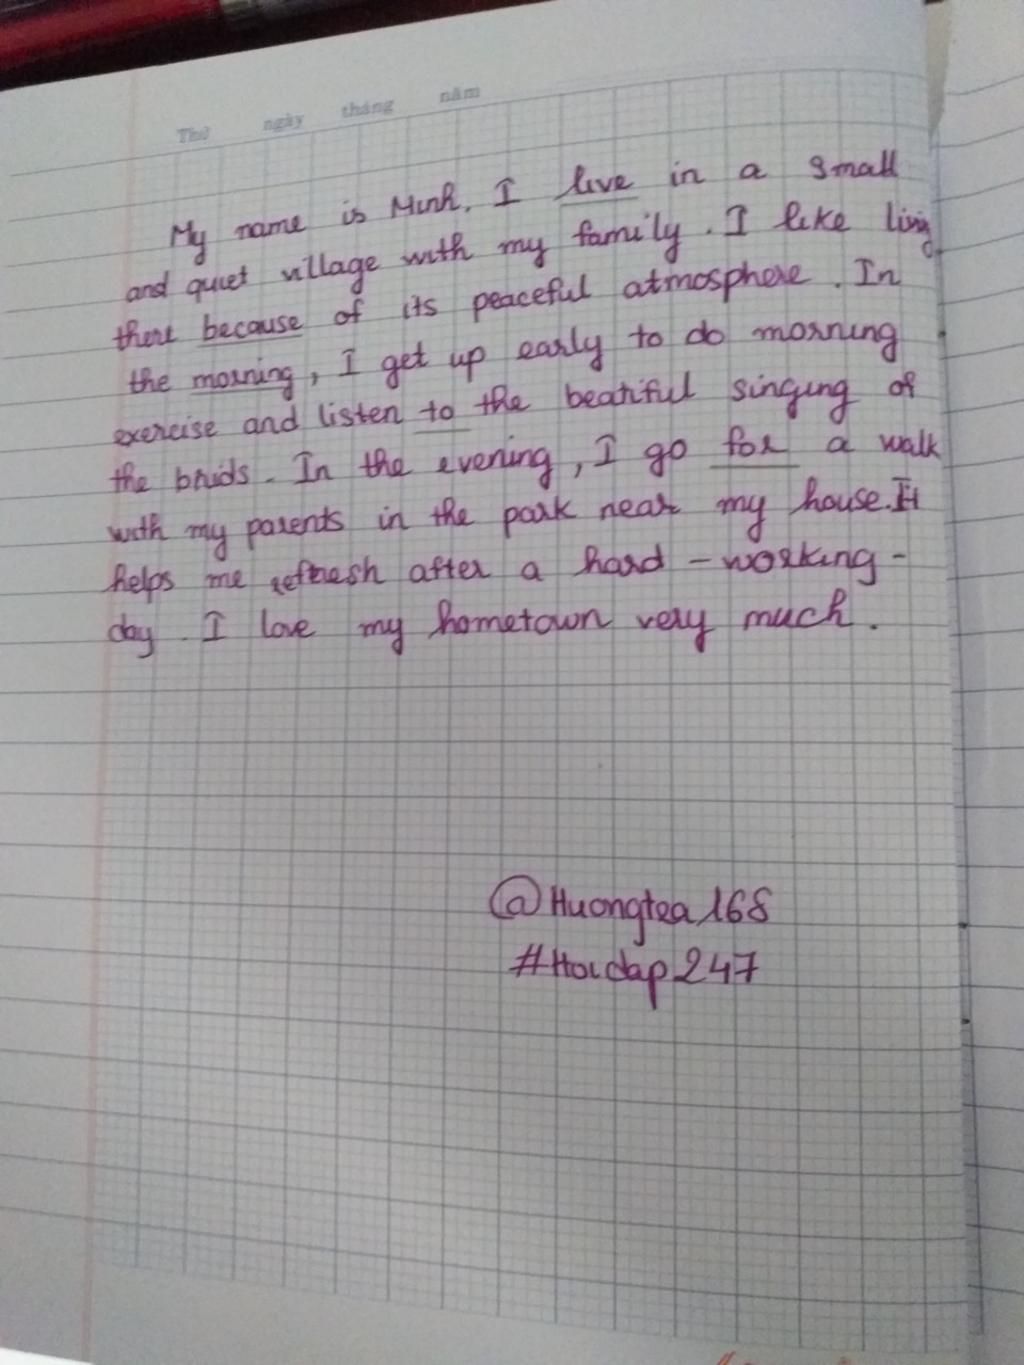 Thứ ngày tháng năm
My name is Minh. I live in a small
and quiet village with my family. I like living
there because of its peaceful atmosphere. In
the morning, I get up early to do morning
exercise and listen to the beatiful singing of
the brids. In the evening, I go for a walk
with my parents in the park near my house. It
helps me refresh after a hard - working -
day. I love my hometown very much.
@Huongtea168
#Hoidap247